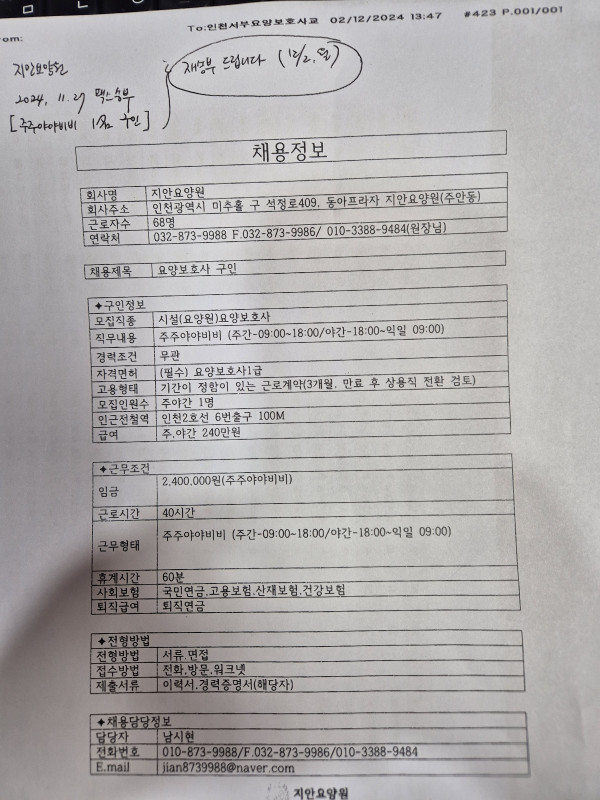 rom:
To:인천서부요양보호사교 02/12/2024 13:47 #423 P.001/001
지안요양원
2024. 11. 27 팩스송부
[주주야야비비 1명 구인]
재송부 드립니다 (12/2, 월)
채용정보
회사명 지안요양원
회사주소 인천광역시 미추홀 구 석정로409, 동아프라자 지안요양원(주안동)
근로자수 68명
연락처 032-873-9988 F.032-873-9986/ 010-3388-9484(원장님)
채용제목 요양보호사 구인
✦구인정보
모집직종 시설(요양원)요양보호사
직무내용 주주야야비비 (주간-09:00~18:00/야간-18:00~익일 09:00)
경력조건 무관
자격면허 (필수) 요양보호사1급
고용형태 기간이 정함이 있는 근로계약(3개월, 만료 후 상용직 전환 검토)
모집인원수 주야간 1명
인근전철역 인천2호선 6번출구 100M
급여 주,야간 240만원
✦근무조건
임금 2,400,000원(주주야야비비)
근로시간 40시간
근무형태 주주야야비비 (주간-09:00~18:00/야간-18:00~익일 09:00)
휴게시간 60분
사회보험 국민연금,고용보험,산재보험,건강보험
퇴직급여 퇴직연금
✦전형방법
전형방법 서류,면접
접수방법 전화,방문,워크넷
제출서류 이력서,경력증명서(해당자)
✦채용담당정보
담당자 남시현
전화번호 010-873-9988/F.032-873-9986/010-3388-9484
E.mail jian8739988@naver.com
지안요양원